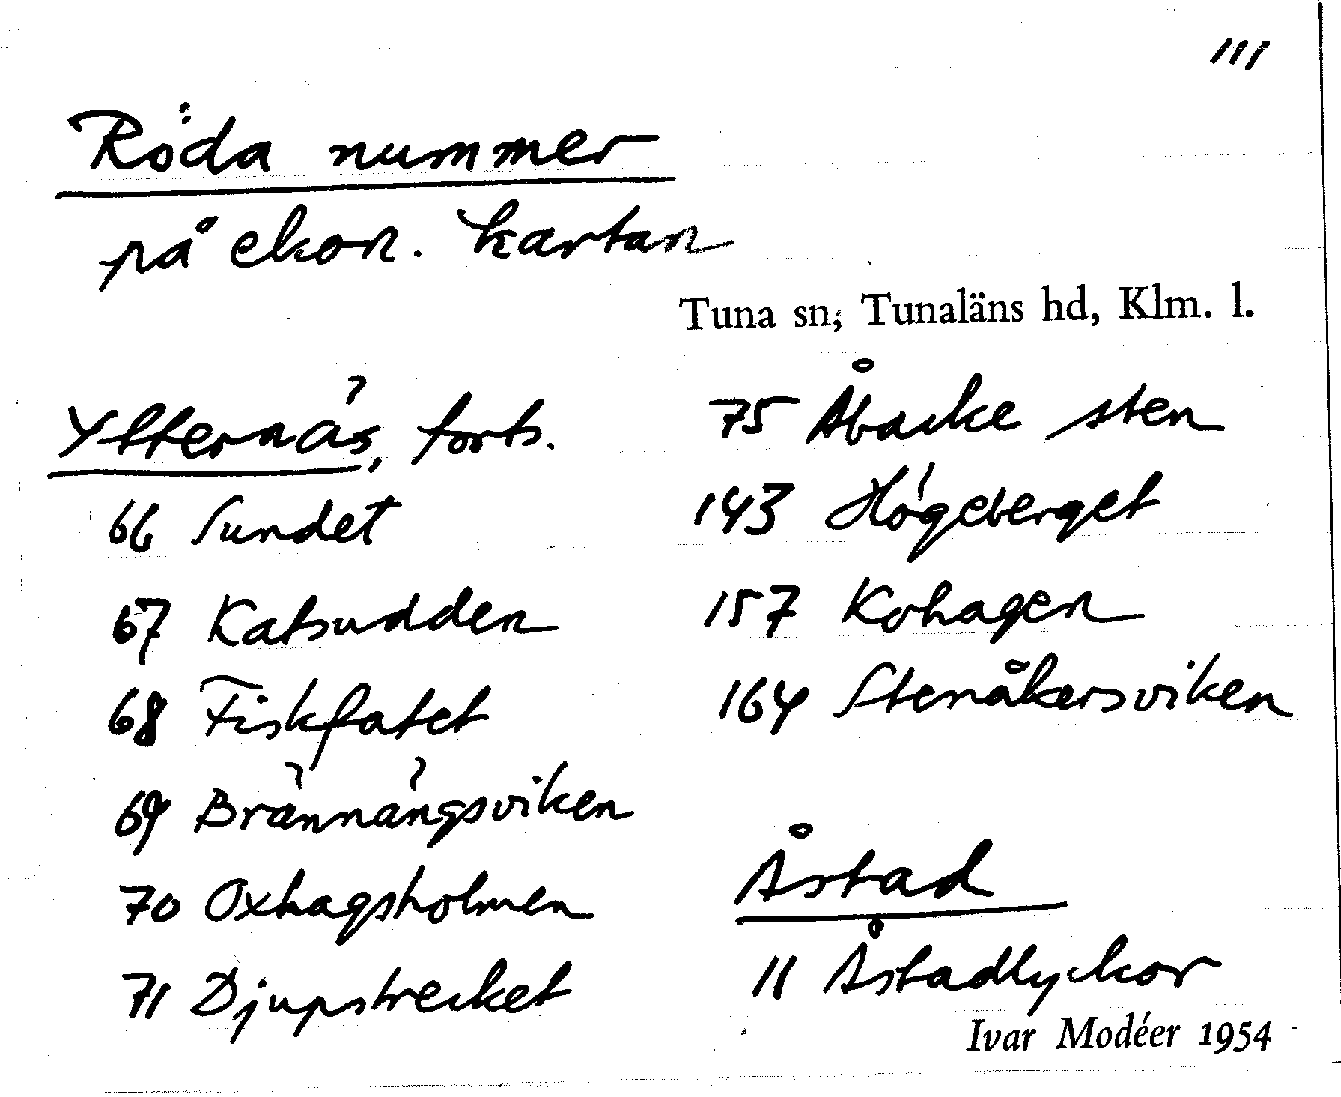 111
Röda nummer
på ekon. kartan
Tuna sn, Tunaläns hd, Klm. l.
Ytternäs, forts.
66 Sundet
67 Katsudden
68 Fiskfatet
69 Brännängsviken
70 Oxhagsholmen
71 Djupstrecket
75 Åbacke sten
143 Högeberget
157 Kohagen
164 Stenåkersviken
Åstad
11 Åstadlyckor
Ivar Modéer 1954